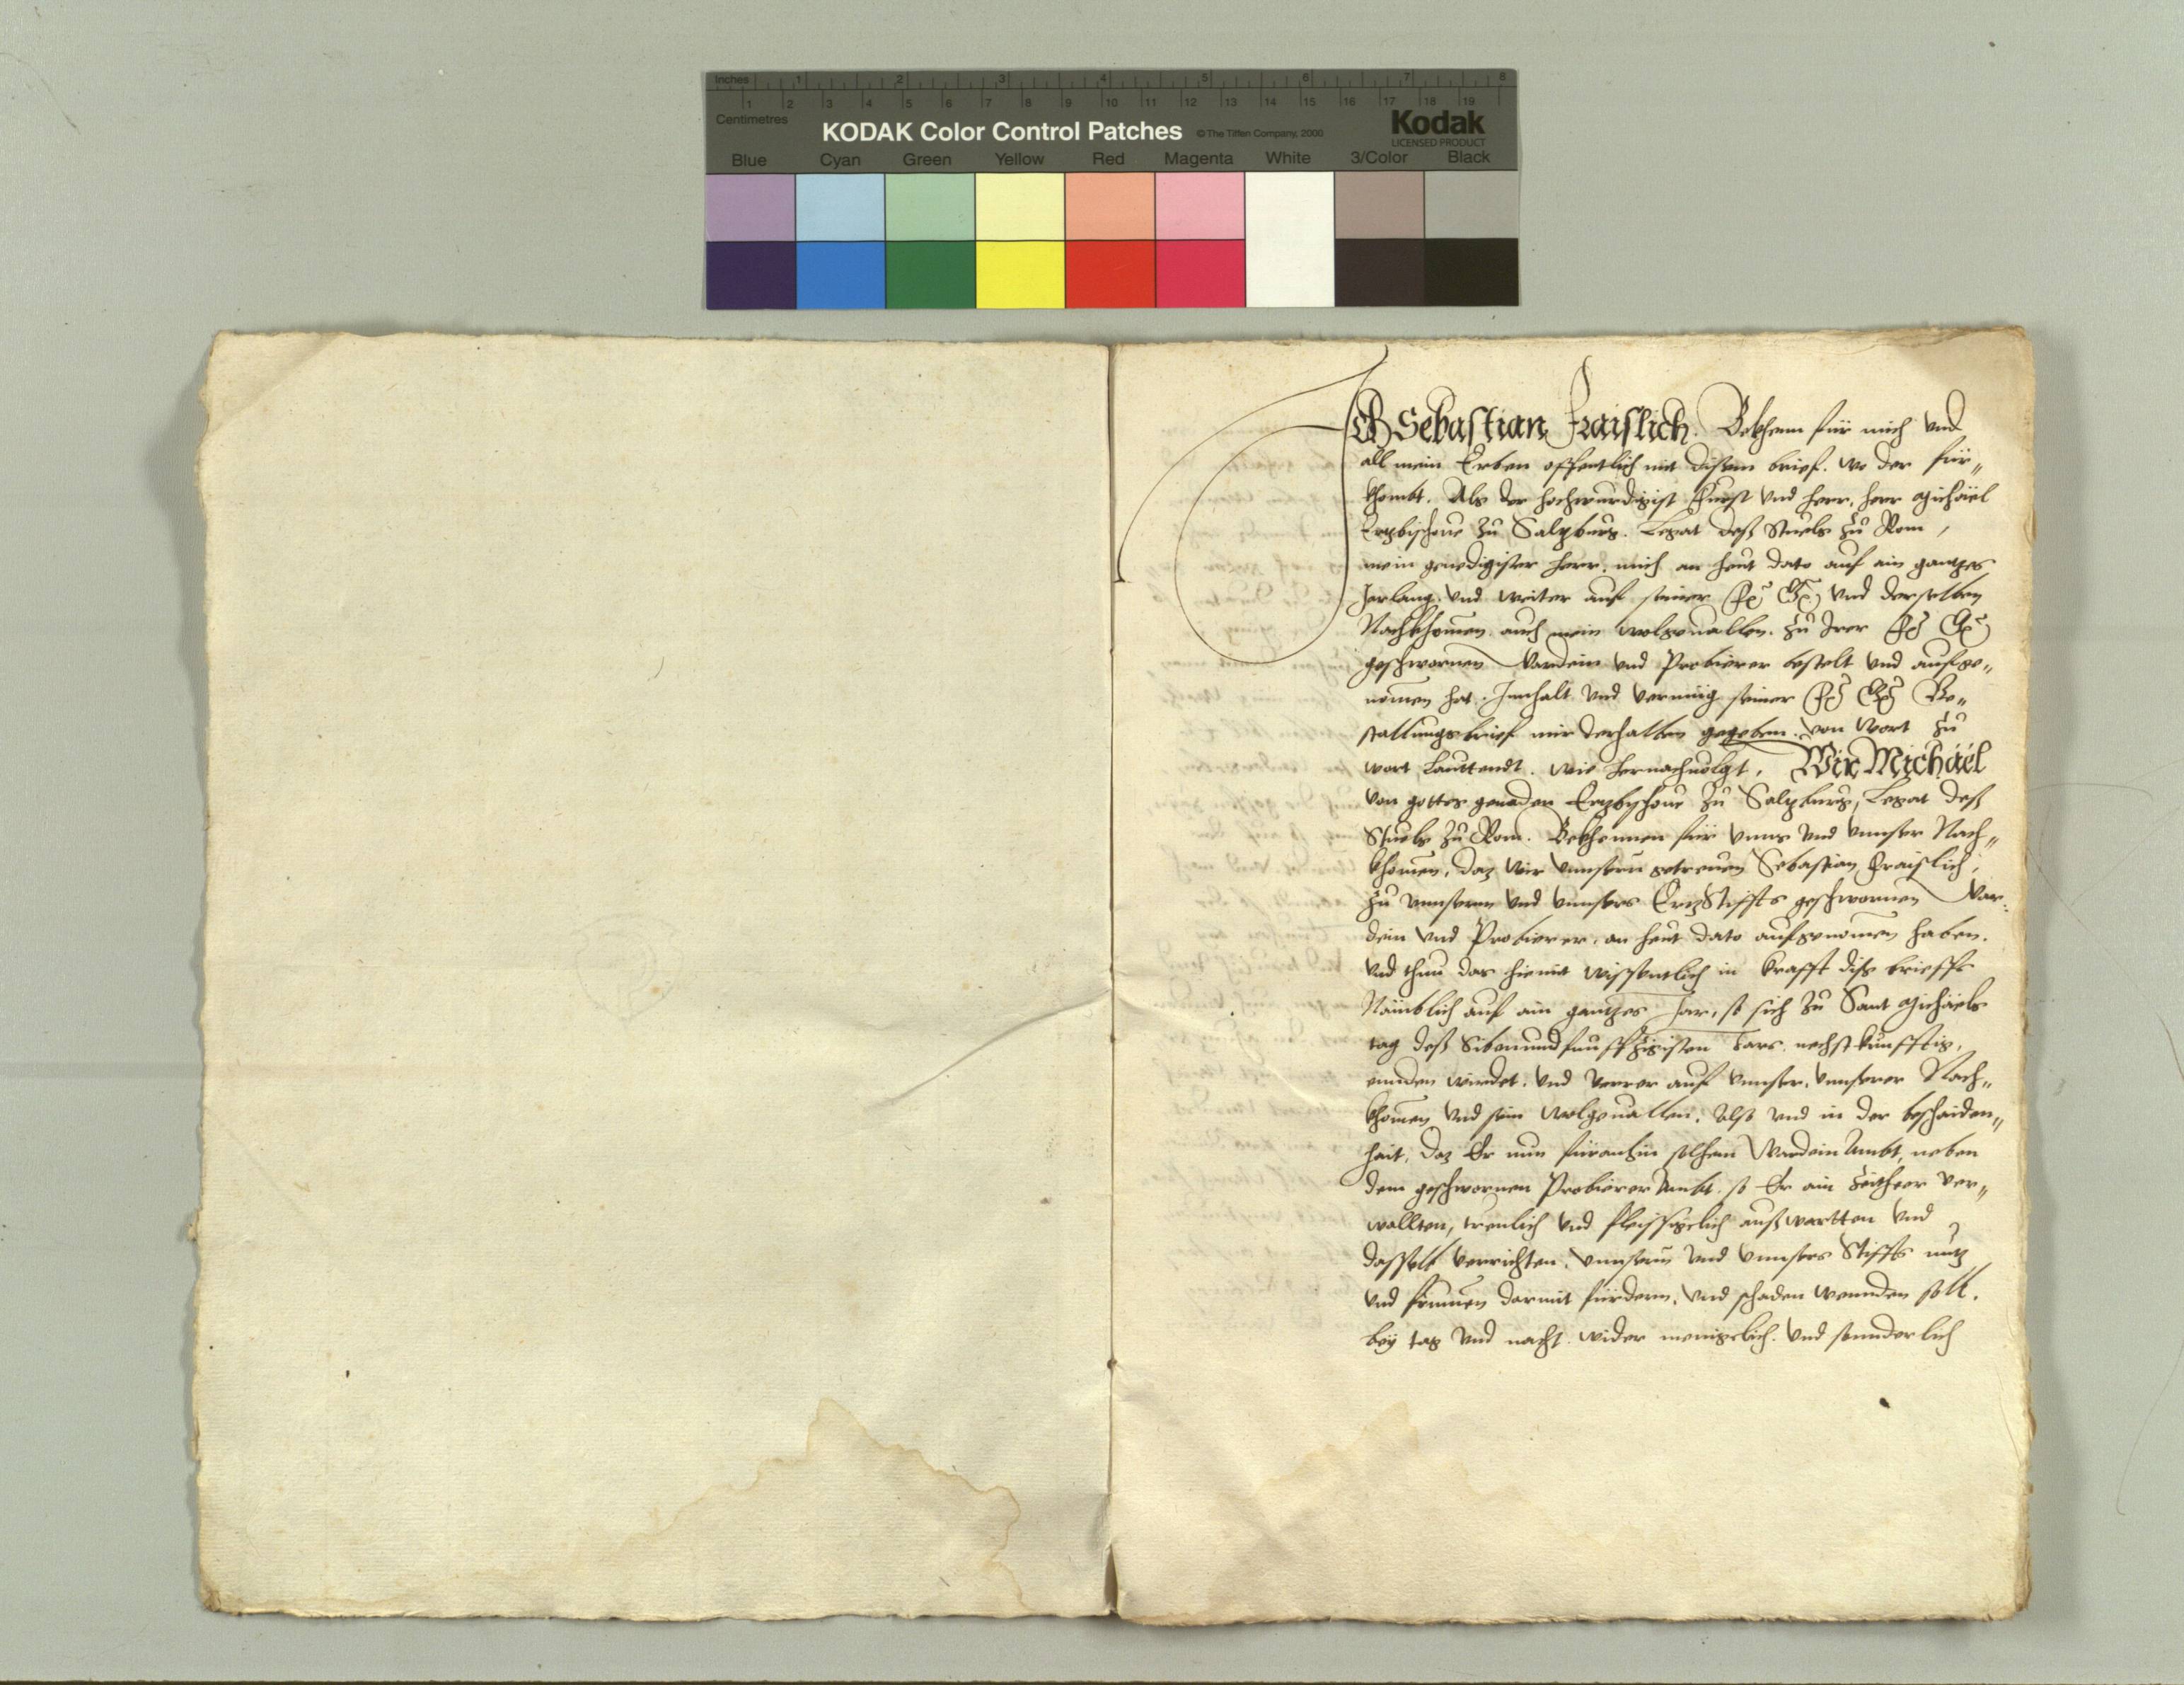 Inches 1 2 3 4 5 6 7 8
1 2 3 4 5 6 7 8 9 10 11 12 13 14 15 16 17 18 19
Centimetres
KODAK Color Control Patches © The Tiffen Company, 2000 Kodak
LICENSED PRODUCT
Blue Cyan Green Yellow Red Magenta White 3/Color Black
Ich Sebastian Fraislich. Bekhenn für mich vnd
all mein Erben offentlich mit disem brief. wo der für„
khombt. Als der hochwürdigist Fürst vnd herr, herr Michäel
Ertzbischoue zu Saltzburg. Legat deß Stuels zu Rom,
mein genedigister herr, mich an heut dato auf ain gantzes
Jarlang. vnd weiter auf seiner vnd derselben
Nachkhomen auch mein wolgeuallen. zu Irer
geschwornen Wardein vnd Probierer bestelt vnd aufge„
nomen hat. Innhalt vnd vermüg seiner Be„
stallungsbrief mir derhalben gegeben. von Wort zu
wort Lauttendt. wie hernachuolgt, Wir Michäel
von gottes genaden Ertzbischoue zu Saltzburg, Legat deß
Stuels zu Rom. Bekhennen für vnns vnd vnnser Nach„
khomen, daz wir vnnsern getreuen Sebastian Fraislich,
zu vnnserm vnd vnnsers ErtzStiffts geschwornen War:
dein vnd Probierer, an heut dato aufgenomen haben.
vnd thun das hiemit wissentlich in krafft diß brieffs
Nämblich auf ain gantzes Jar, so sich zu Sant Michäels
tag deß Sibenundfunffzigisten Jars, nechstkünfftig,
ennden wirdet. vnd verrer auf vnnser, vnnserer Nach„
khomen vnd sein wolgeuallen. Also vnd in der beschaiden„
hait, daz Er nun füranhin solhem Wardein Ambt, neben
dem geschwornen Probierer Ambt, so Er ain Zeitheer ver„
wallten, treulich vnd fleissigelich außwartten vnd
dasselb verrichten. vnnsern vnd vnnsers Stiffts nutz
vnd frumen darmit fürdern, vnd schaden wennden soll.
bey tag vnd nacht wider menigelich. vnd sonnderlich